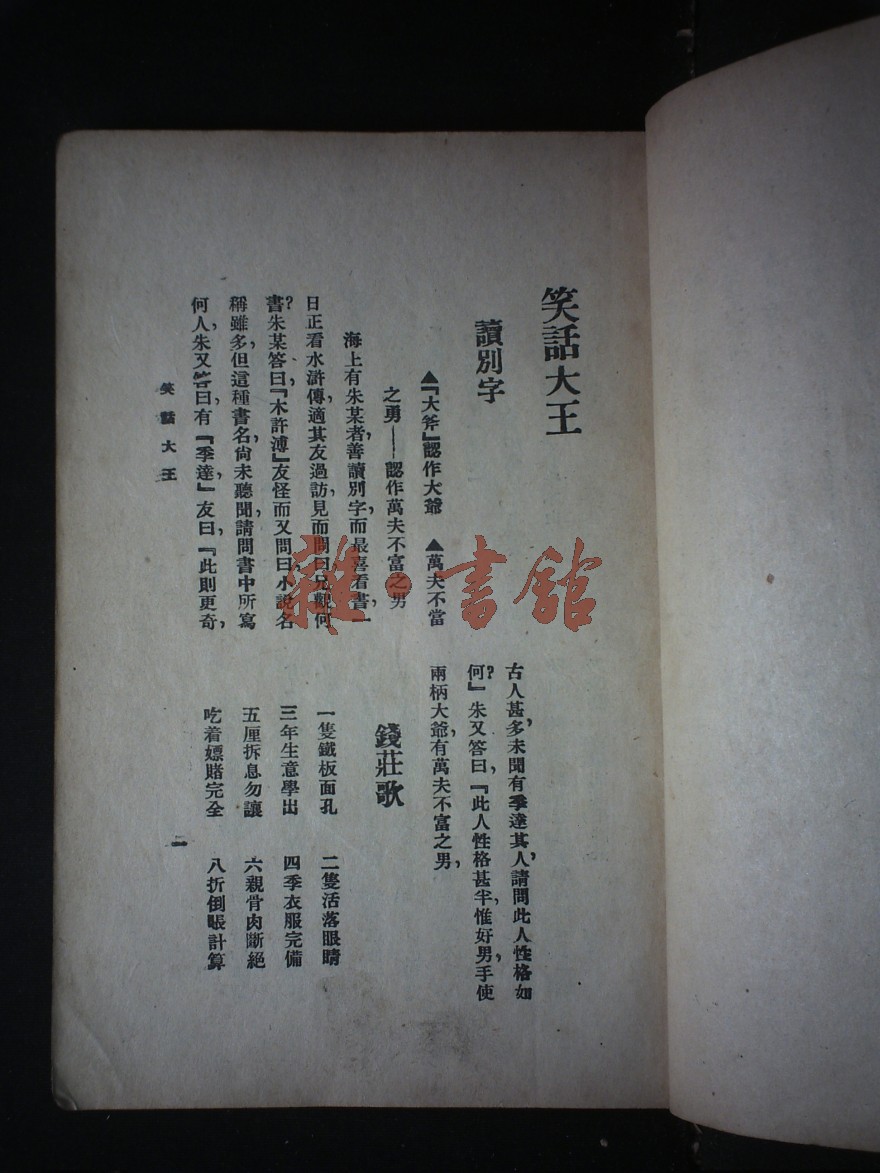 笑話大王
讀別字
▲『大斧』認作大爺　▲萬夫不當
之勇——認作萬夫不富之男
海上有朱某者，善讀別字，而最喜看書，一
日正看水滸傳，適其友過訪，見而問曰，兄觀何
書？朱某答曰，『木許溥』友怪而又問曰，小說名
稱雖多，但這種書名，尙未聽聞，請問書中所寫
何人，朱又答曰，有『季達』友曰，『此則更奇，
古人甚多，未聞有季達其人，請問此人性格如
何？』朱又答曰，『此人性格甚半，惟好男，手使
兩柄大爺，有萬夫不富之男，
錢莊歌
一隻鐵板面孔　二隻活落眼睛
三年生意學出　四季衣服完備
五厘拆息勿讓　六親骨肉斷絕
吃着嫖賭完全　八折倒賬計算
笑話大王
一
雜·書館